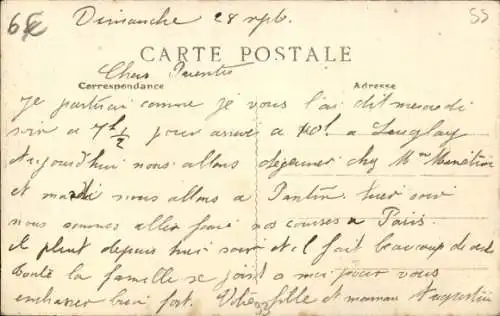 65
55
Dimanche 28 sept.
CARTE POSTALE
Chers Parents
Correspondance
Adresse
Je partirai comme je vous l'ai dit mercredi
soir a 7h 1/2 pour arriver a 10h. a
Aujourd'hui nous allons déjeuner chez Mme
et mardi nous allons a Pantin. hier soir
nous sommes aller faire nos courses a Paris.
il pleut depuis hier soir et il fait beaucoup de vent
toute la famille se joint a moi pour vous
embrasser bien fort. Votre fille et maman Augustine